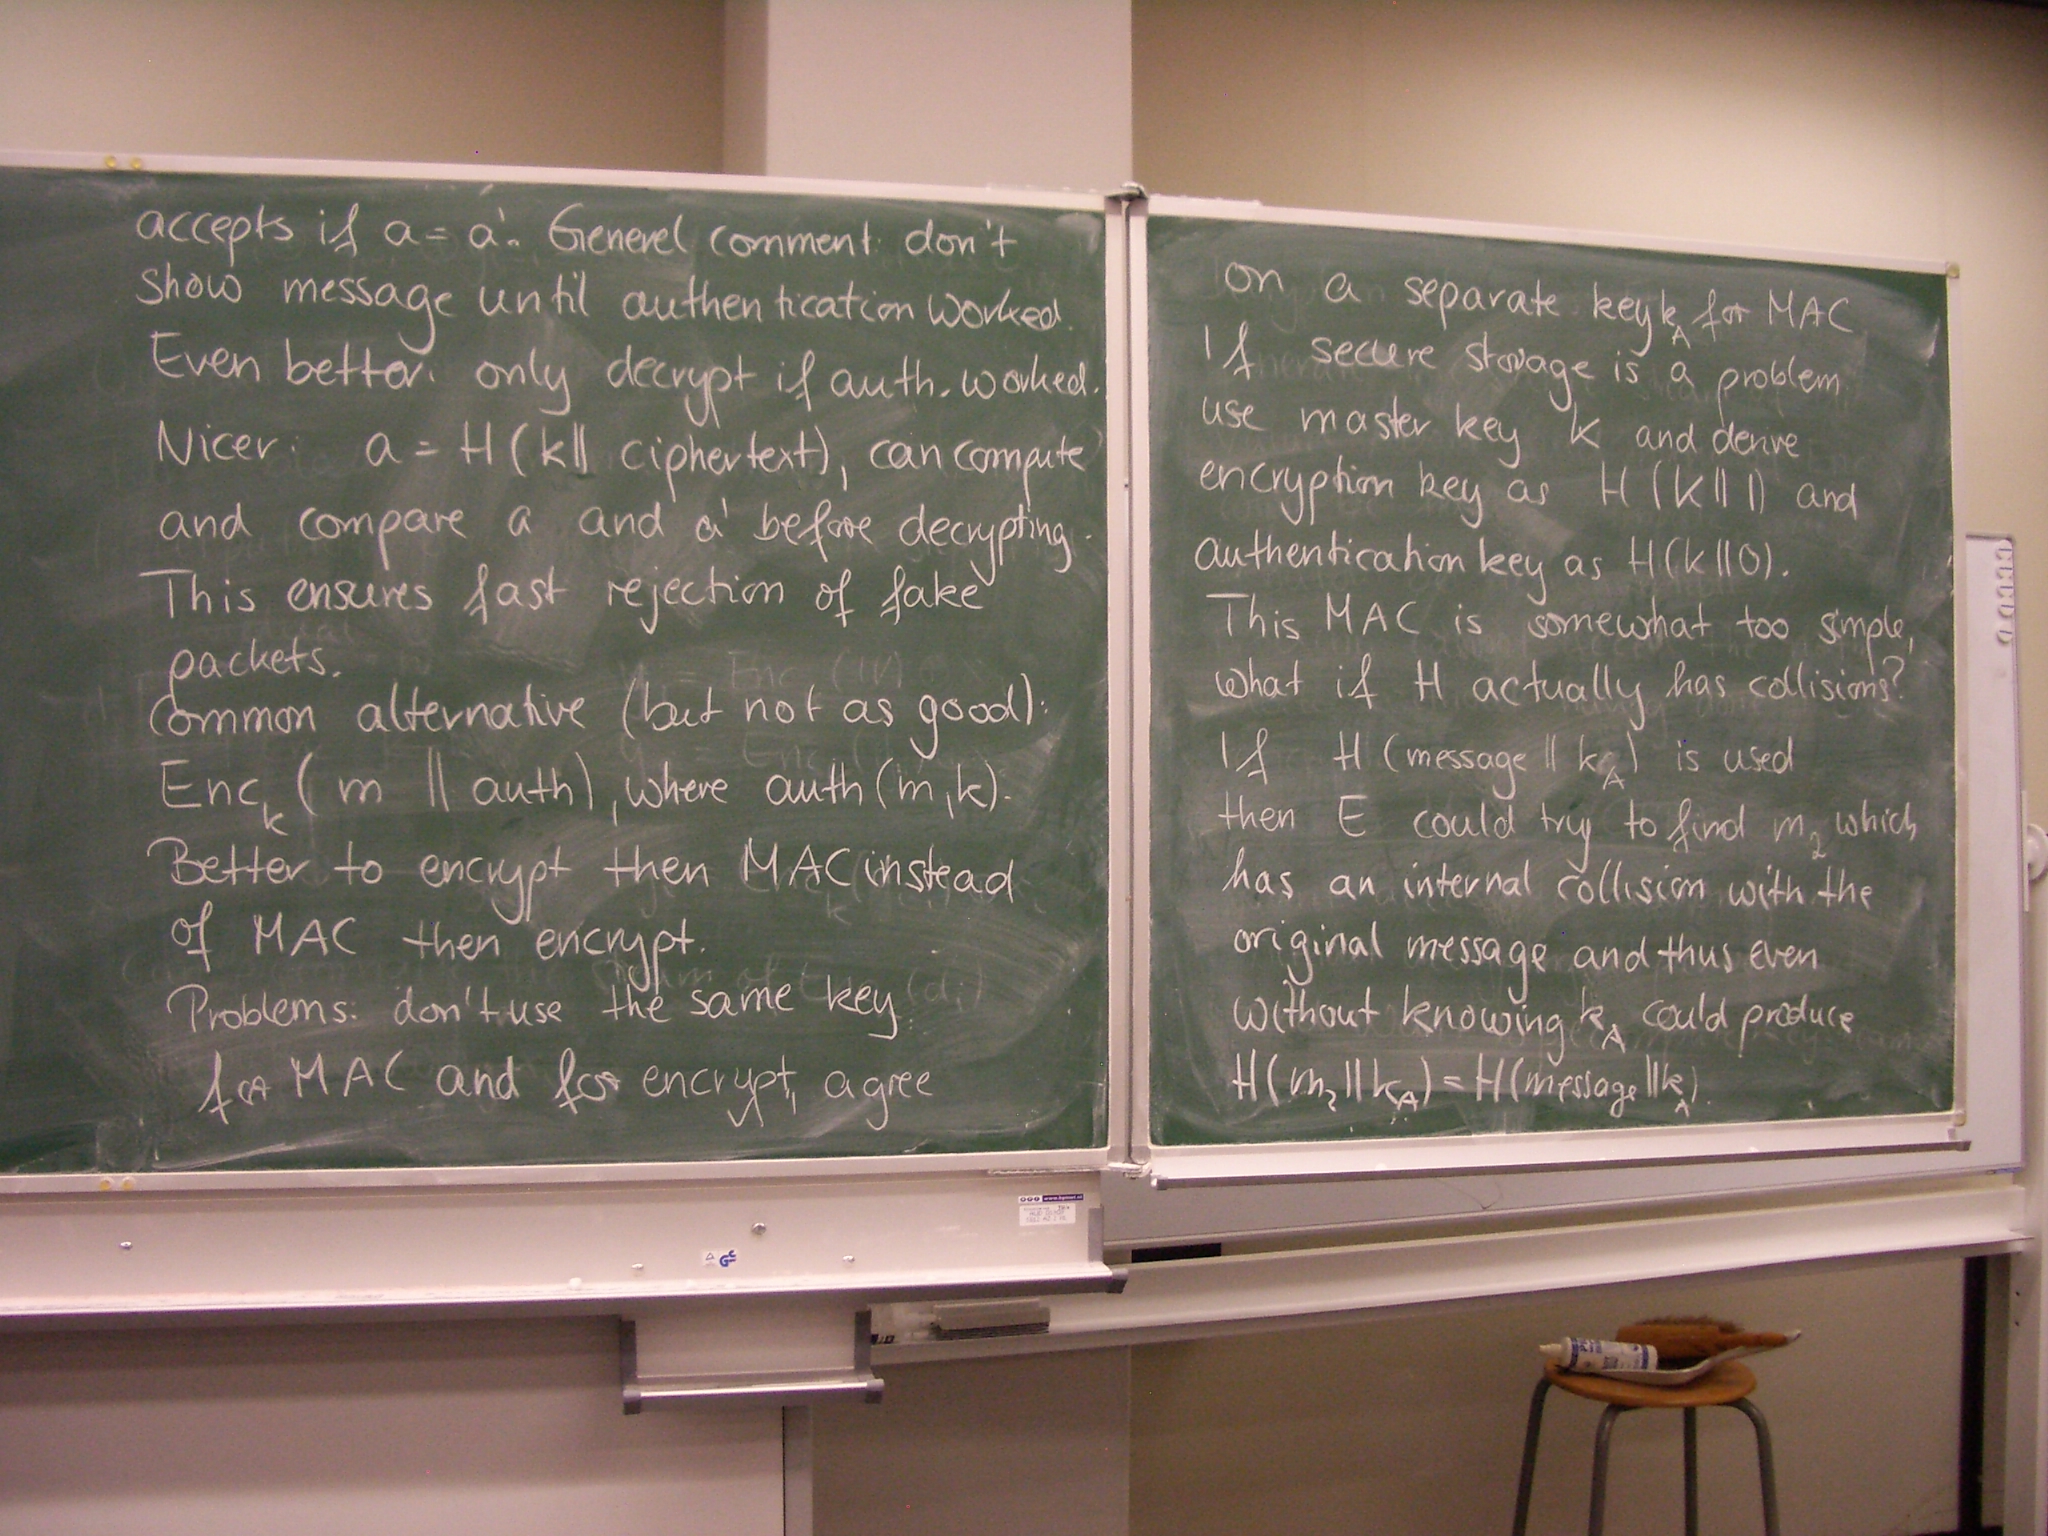 accepts if a = a'. General comment: don't
show message until authentication worked.
Even better: only decrypt if auth. worked.
Nicer: a = H(k|| ciphertext), can compute
and compare a and a' before decrypting.
This ensures fast rejection of fake
packets.
Common alternative (but not as good):
Enc_k ( m || auth), where auth(m,k).
Better to encrypt then MAC instead
of MAC then encrypt.
Problems: don't use the same key
for MAC and for encrypt, agree
on a separate key k_A for MAC
If secure storage is a problem
use master key k and derive
encryption key as H(k||1) and
authentication key as H(k||0).
This MAC is somewhat too simple,
what if H actually has collisions?
If H(message || k_A) is used
then E could try to find m_2 which
has an internal collision with the
original message and thus even
without knowing k_A could produce
H(m_2||k_A) = H(message||k_A).